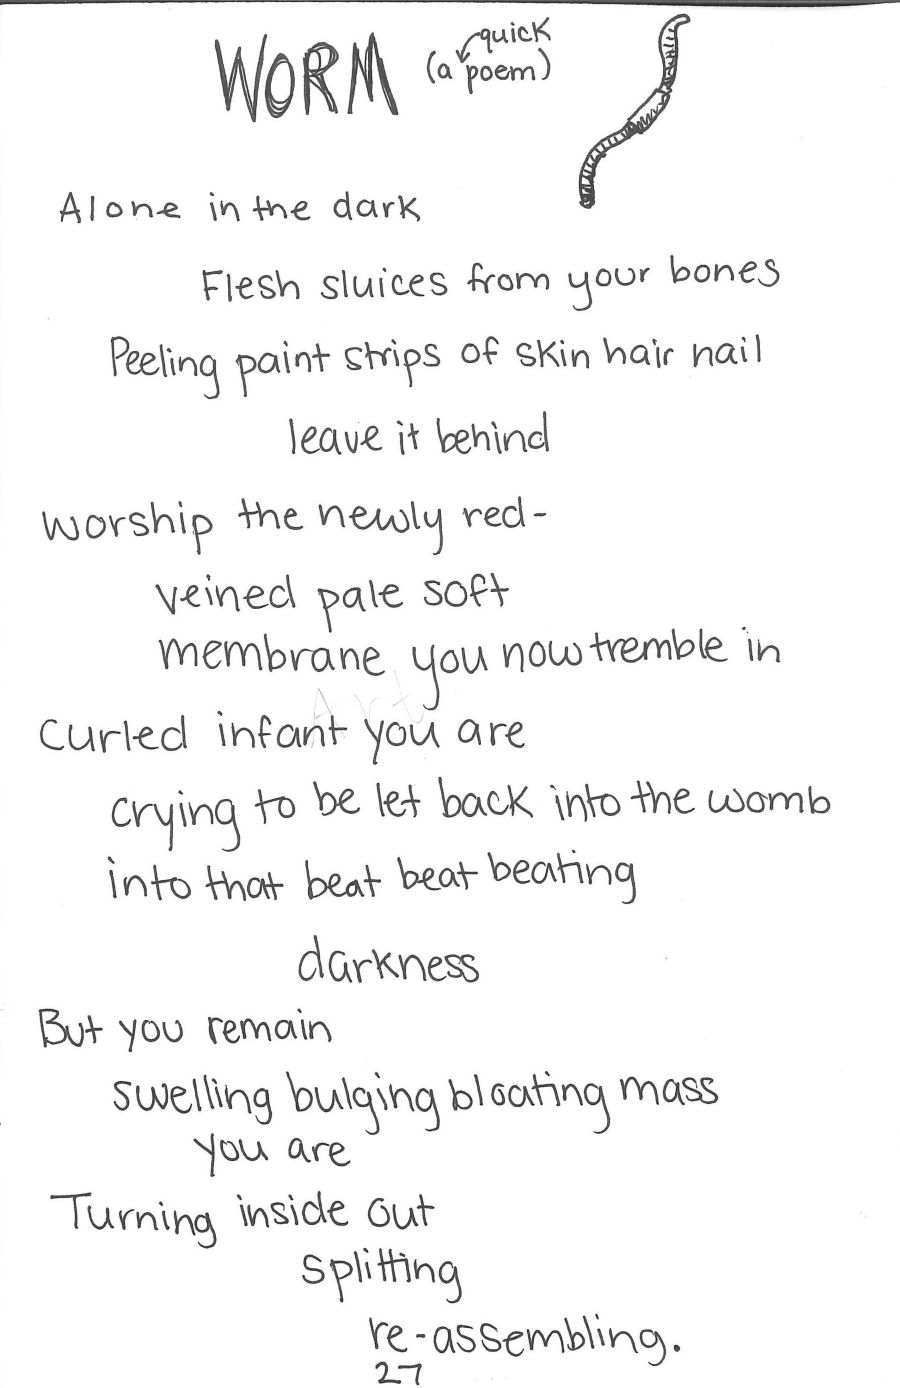 WORM (a quick poem)
Alone in the dark
Flesh sluices from your bones
Peeling paint strips of skin hair nail
leave it behind
worship the newly red-
veined pale soft
membrane you now tremble in
Curled infant you are
crying to be let back into the womb
into that beat beat beating
darkness
But you remain
swelling bulging bloating mass
you are
Turning inside out
splitting
re-assembling.
27